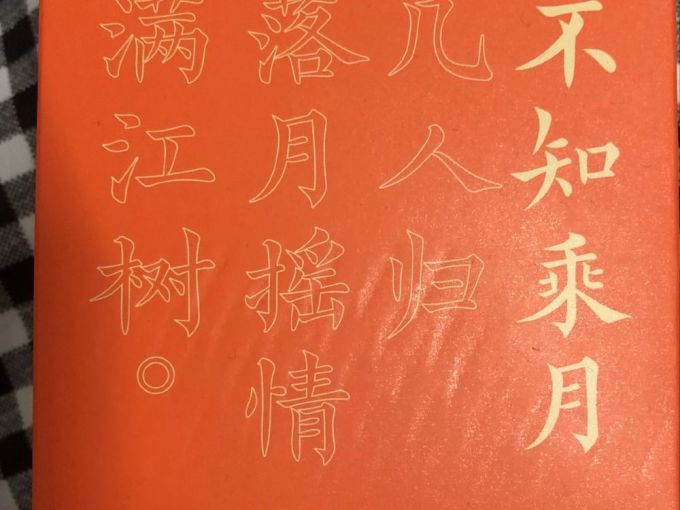 不知乘月
几人归
落月摇情
满江树。